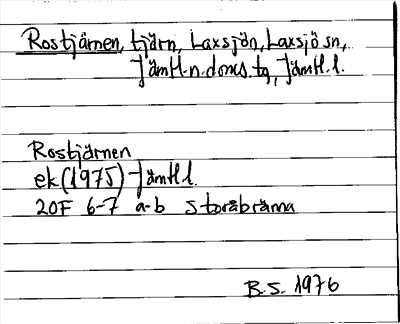 Rostjärnen, tjärn, Laxsjön, Laxsjö sn,
Jämtl. n. doms. tg, Jämtl. l.
Rostjärnen
ek (1975) Jämtl l.
20F 6-7 a-b Storåbränna
B.S. 1976